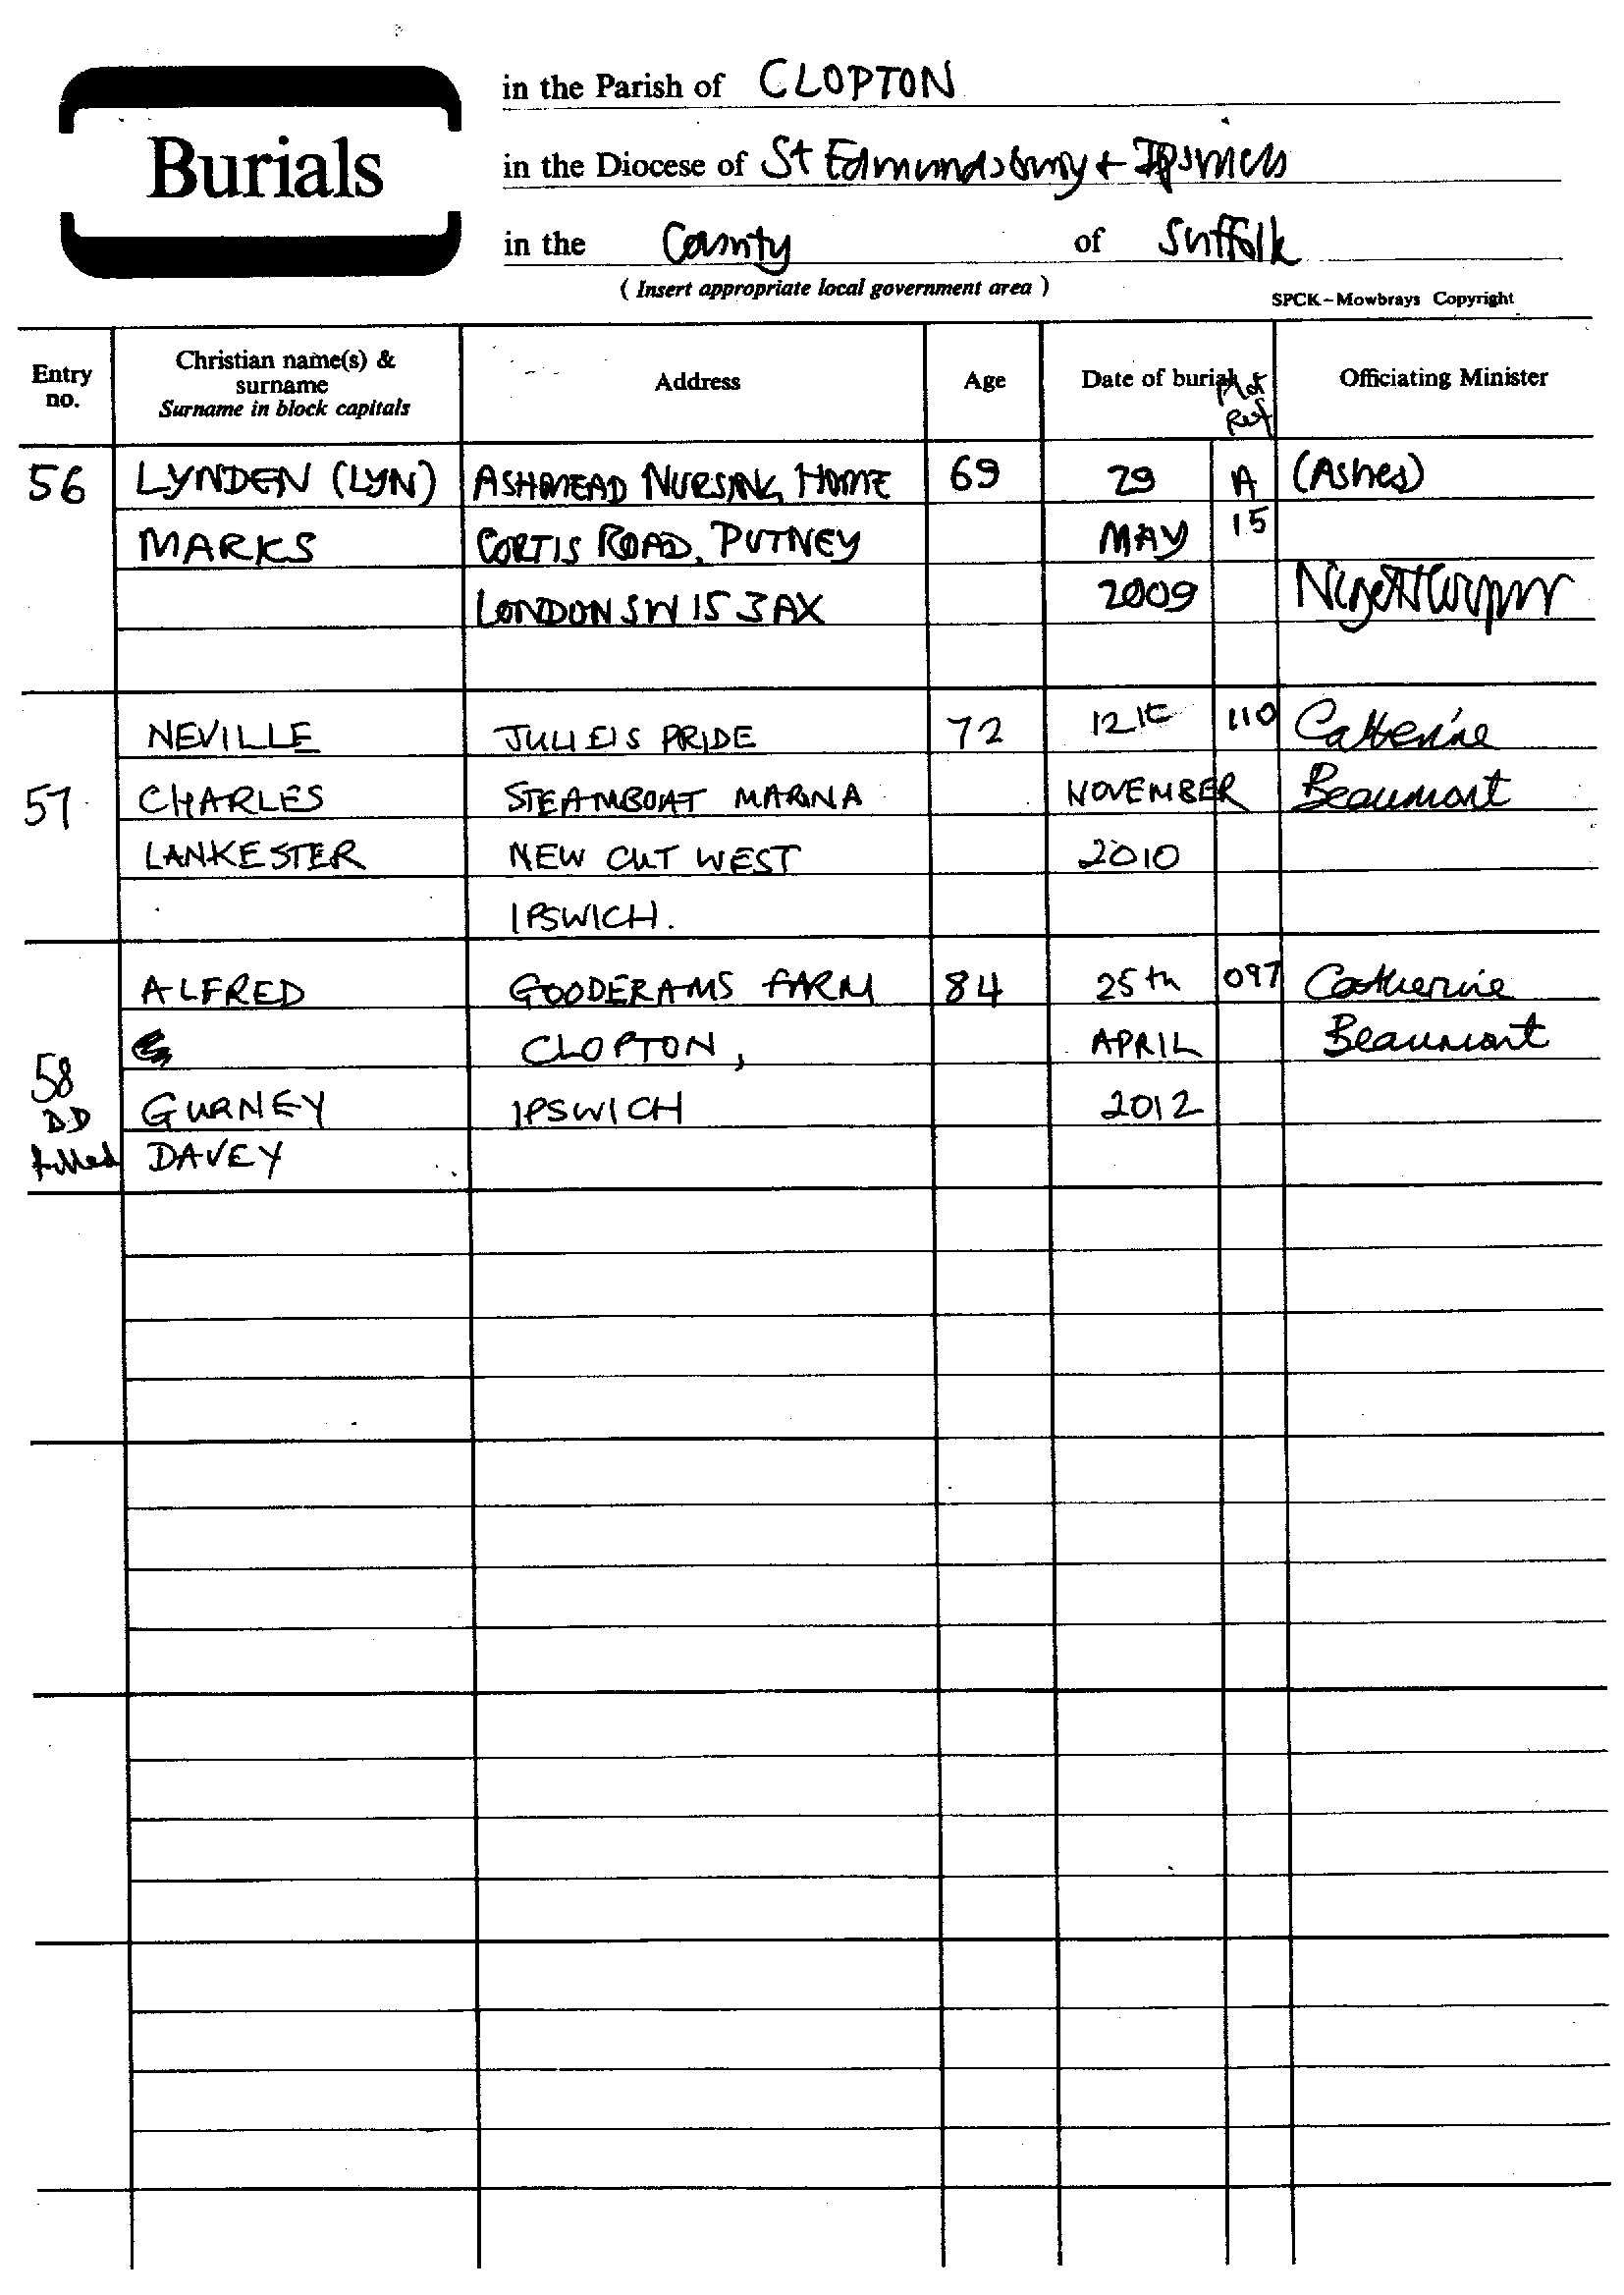 Burials
in the Parish of CLOPTON
in the Diocese of St Edmundsbury + Ipswich
in the County of Suffolk
( Insert appropriate local government area )
SPCK–Mowbrays Copyright
Entry no.
Christian name(s) & surname
Surname in block capitals
Address
Age
Date of burial
Plot Ref
Officiating Minister
56 LYNDEN (LYN) ASHMEAD NURSING HOME 69 29 A (Ashes)
MARKS CORTIS ROAD, PUTNEY MAY 15
LONDON SW 15 3AX 2009
NEVILLE JULIEIS PRIDE 72 12th 110 Catherine
57 CHARLES STEAMBOAT MARINA NOVEMBER Beaumont
LANKESTER NEW CUT WEST 2010
IPSWICH.
ALFRED GOODERAMS FARM 84 25th 097 Catherine
58 CLOPTON, APRIL Beaumont
DD GURNEY IPSWICH 2012
filled DAVEY